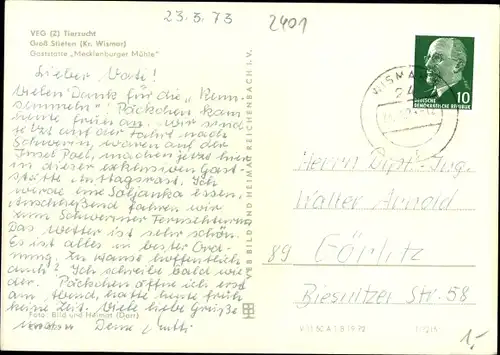 23.5.73
2401
VEG (Z) Tierzucht
Groß Stieten (Kr. Wismar)
Gaststätte „Mecklenburger Mühle"
Lieber Vati!
Vielen Dank für die
Päckchen kam
heute früh an. Wir sind
jetzt auf der Fahrt nach
Schwerin, waren auf der
Insel Poel, machen jetzt hier
in dieser exklusiven Gast-
stätte Mittagsrast. Ich
werde eine Soljanka essen.
Anschließend fahren wir
zum Schweriner Fernsehturm.
Das Wetter ist sehr schön.
Es ist alles in bester Ord-
nung. Zu Hause hoffentlich
auch? Ich schreibe bald wie-
der. Päckchen öffne ich erst
am Abend, hatte heute früh
keine Zeit. Viele liebe Grüße
Deine Mutti
Foto: Bild und Heimat (Dart)
VEB BILD UND HEIMAT REICHENBACH I. V.
WISMAR
24
10
DEUTSCHE
DEMOKRATISCHE REPUBLIK
Herrn Dipl.-Ing.
Walter Arnold
89 Görlitz
Biesnitzer Str. 58
1,-